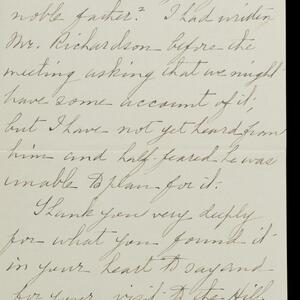 noble father? I had written
Mr. Richardson before the
meeting asking that we might
have some account of it;
but I have not yet heard from
him and half feared he was
unable to plan for it.
Thank you very deeply
for what you found it
in your heart to say and
for your visit to the Hill